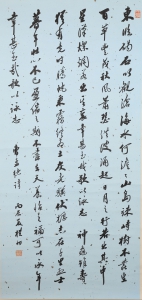 東臨碣石以觀滄海水何澹澹山島竦峙樹木叢生
百草豐茂秋風蕭瑟洪波涌起日月之行若出其中
星漢燦爛若出其里幸甚至哉歌以詠志 神龜雖壽
猶有竟時騰蛇乘霧終為土灰老驥伏櫪志在千里烈士
暮年壯心不已盈縮之期不但在天養怡之福可以永年
幸甚至哉歌以詠志 曹孟德詩